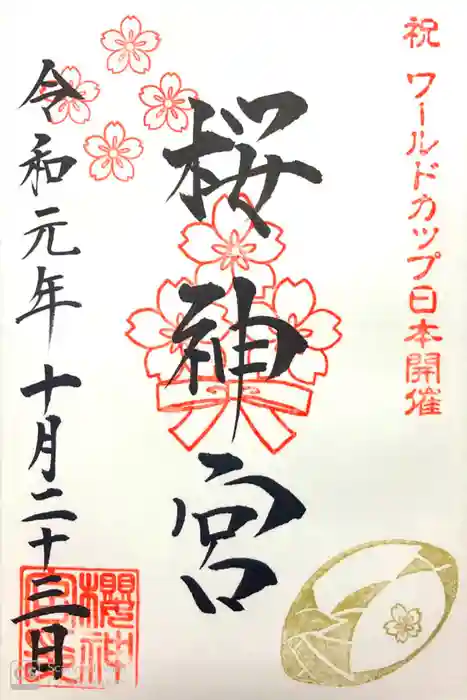 祝 ワールドカップ日本開催
桜神宮
令和元年十月二十三日
櫻神
宮